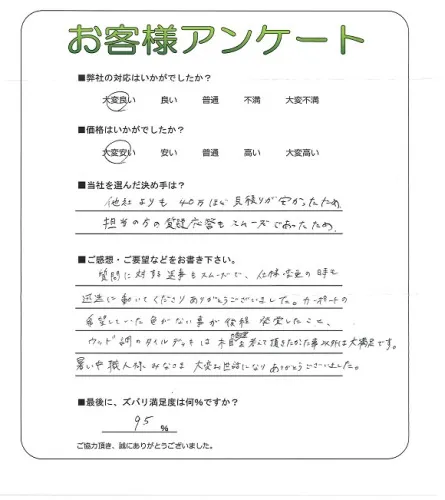 お客様アンケート
■弊社の対応はいかがでしたか？
大変良い 良い 普通 不満 大変不満
■価格はいかがでしたか？
大変安い 安い 普通 高い 大変高い
■当社を選んだ決め手は？
他社よりも40万ほど見積りが安かったため
担当の方の質疑応答もスムーズであったため。
■ご感想・ご要望などをお書き下さい。
質問に対する返事もスムーズで、仕様変更の時も
迅速に動いてくださりありがとうございました。カーポートの
希望していた色がない事が後程 発覚したこと、
ウッド調のタイルデッキは木目を考えて頂きたかった事以外は大満足です。
暑い中職人様みなさま 大変お世話になりありがとうございました。
■最後に、ズバリ満足度は何%ですか？
95 %
ご協力頂き、誠にありがとうございました。